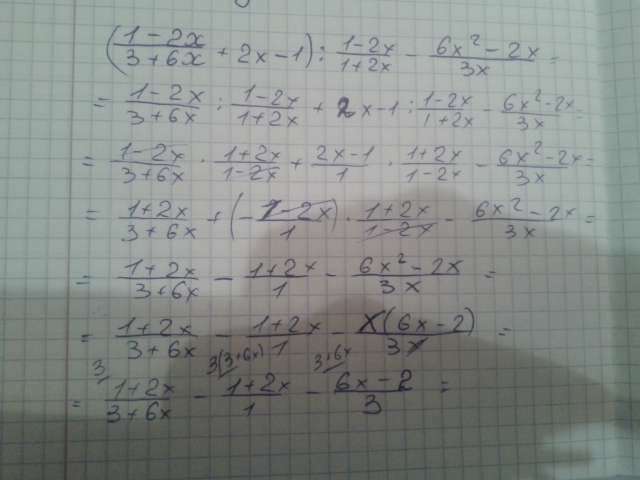 ((1-2x)/(3+6x) + 2x-1) : (1-2x)/(1+2x) - (6x²-2x)/(3x) =
= (1-2x)/(3+6x) : (1-2x)/(1+2x) + 2x-1 : (1-2x)/(1+2x) - (6x²-2x)/(3x) =
= (1-2x)/(3+6x) · (1+2x)/(1-2x) + (2x-1)/1 · (1+2x)/(1-2x) - (6x²-2x)/(3x) =
= (1+2x)/(3+6x) + (-(1-2x)/1) · (1+2x)/(1-2x) - (6x²-2x)/(3x) =
= (1+2x)/(3+6x) - (1+2x)/1 - (6x²-2x)/(3x) =
= (1+2x)/(3+6x) - (1+2x)/1 - x(6x-2)/(3x) =
3 3(3+6x) 3+6x
= (1+2x)/(3+6x) - (1+2x)/1 - (6x-2)/3 =